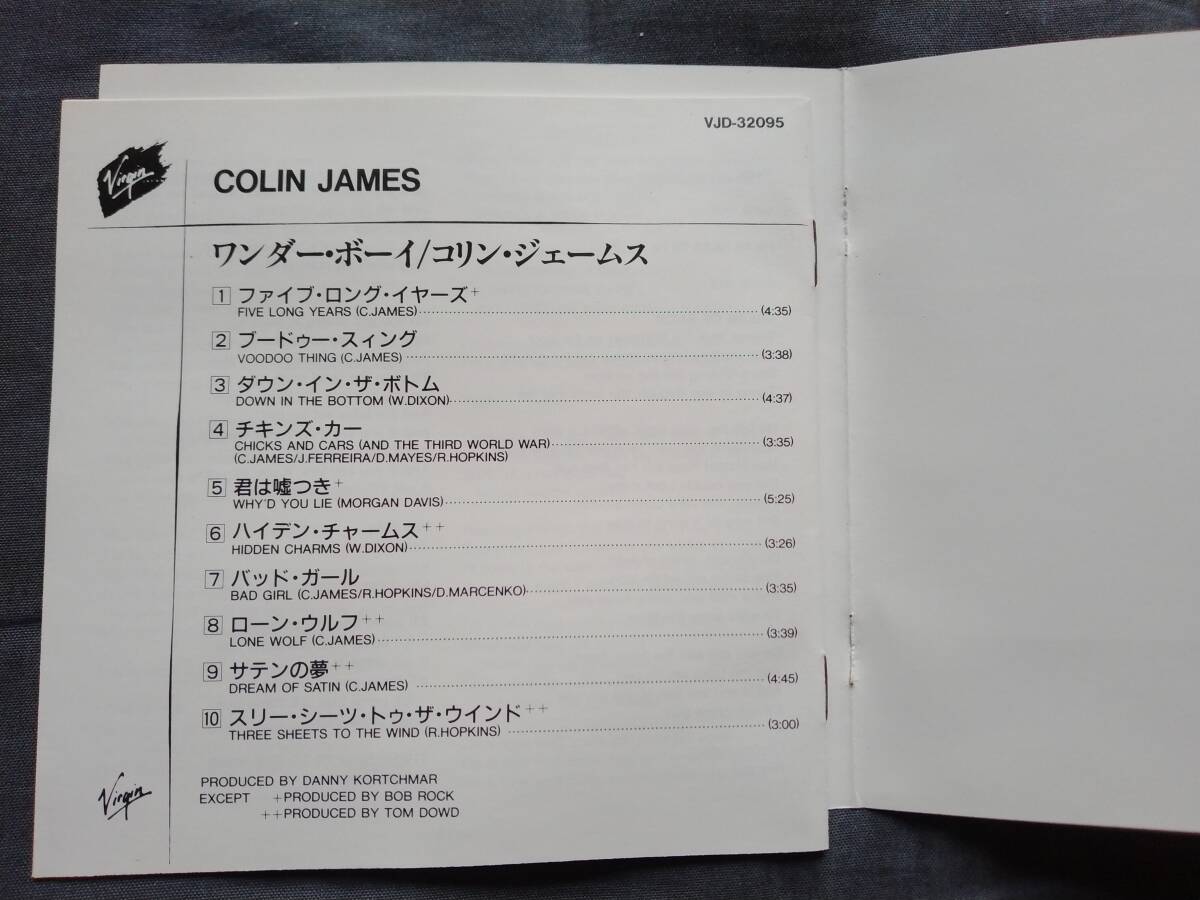 VJD-32095
Virgin
COLIN JAMES
ワンダー・ボーイ/コリン・ジェームス
1 ファイブ・ロング・イヤーズ+
FIVE LONG YEARS (C.JAMES) (4:35)
2 ブードゥー・スィング
VOODOO THING (C.JAMES) (3:38)
3 ダウン・イン・ザ・ボトム
DOWN IN THE BOTTOM (W.DIXON) (4:37)
4 チキンズ・カー
CHICKS AND CARS (AND THE THIRD WORLD WAR) (3:35)
(C.JAMES/J.FERREIRA/D.MAYES/R.HOPKINS)
5 君は嘘つき+
WHY'D YOU LIE (MORGAN DAVIS) (5:25)
6 ハイデン・チャームス++
HIDDEN CHARMS (W.DIXON) (3:26)
7 バッド・ガール
BAD GIRL (C.JAMES/R.HOPKINS/D.MARCENKO) (3:35)
8 ローン・ウルフ++
LONE WOLF (C.JAMES) (3:39)
9 サテンの夢++
DREAM OF SATIN (C.JAMES) (4:45)
10 スリー・シーツ・トゥ・ザ・ウインド++
THREE SHEETS TO THE WIND (R.HOPKINS) (3:00)
PRODUCED BY DANNY KORTCHMAR
EXCEPT +PRODUCED BY BOB ROCK
++PRODUCED BY TOM DOWD
Virgin